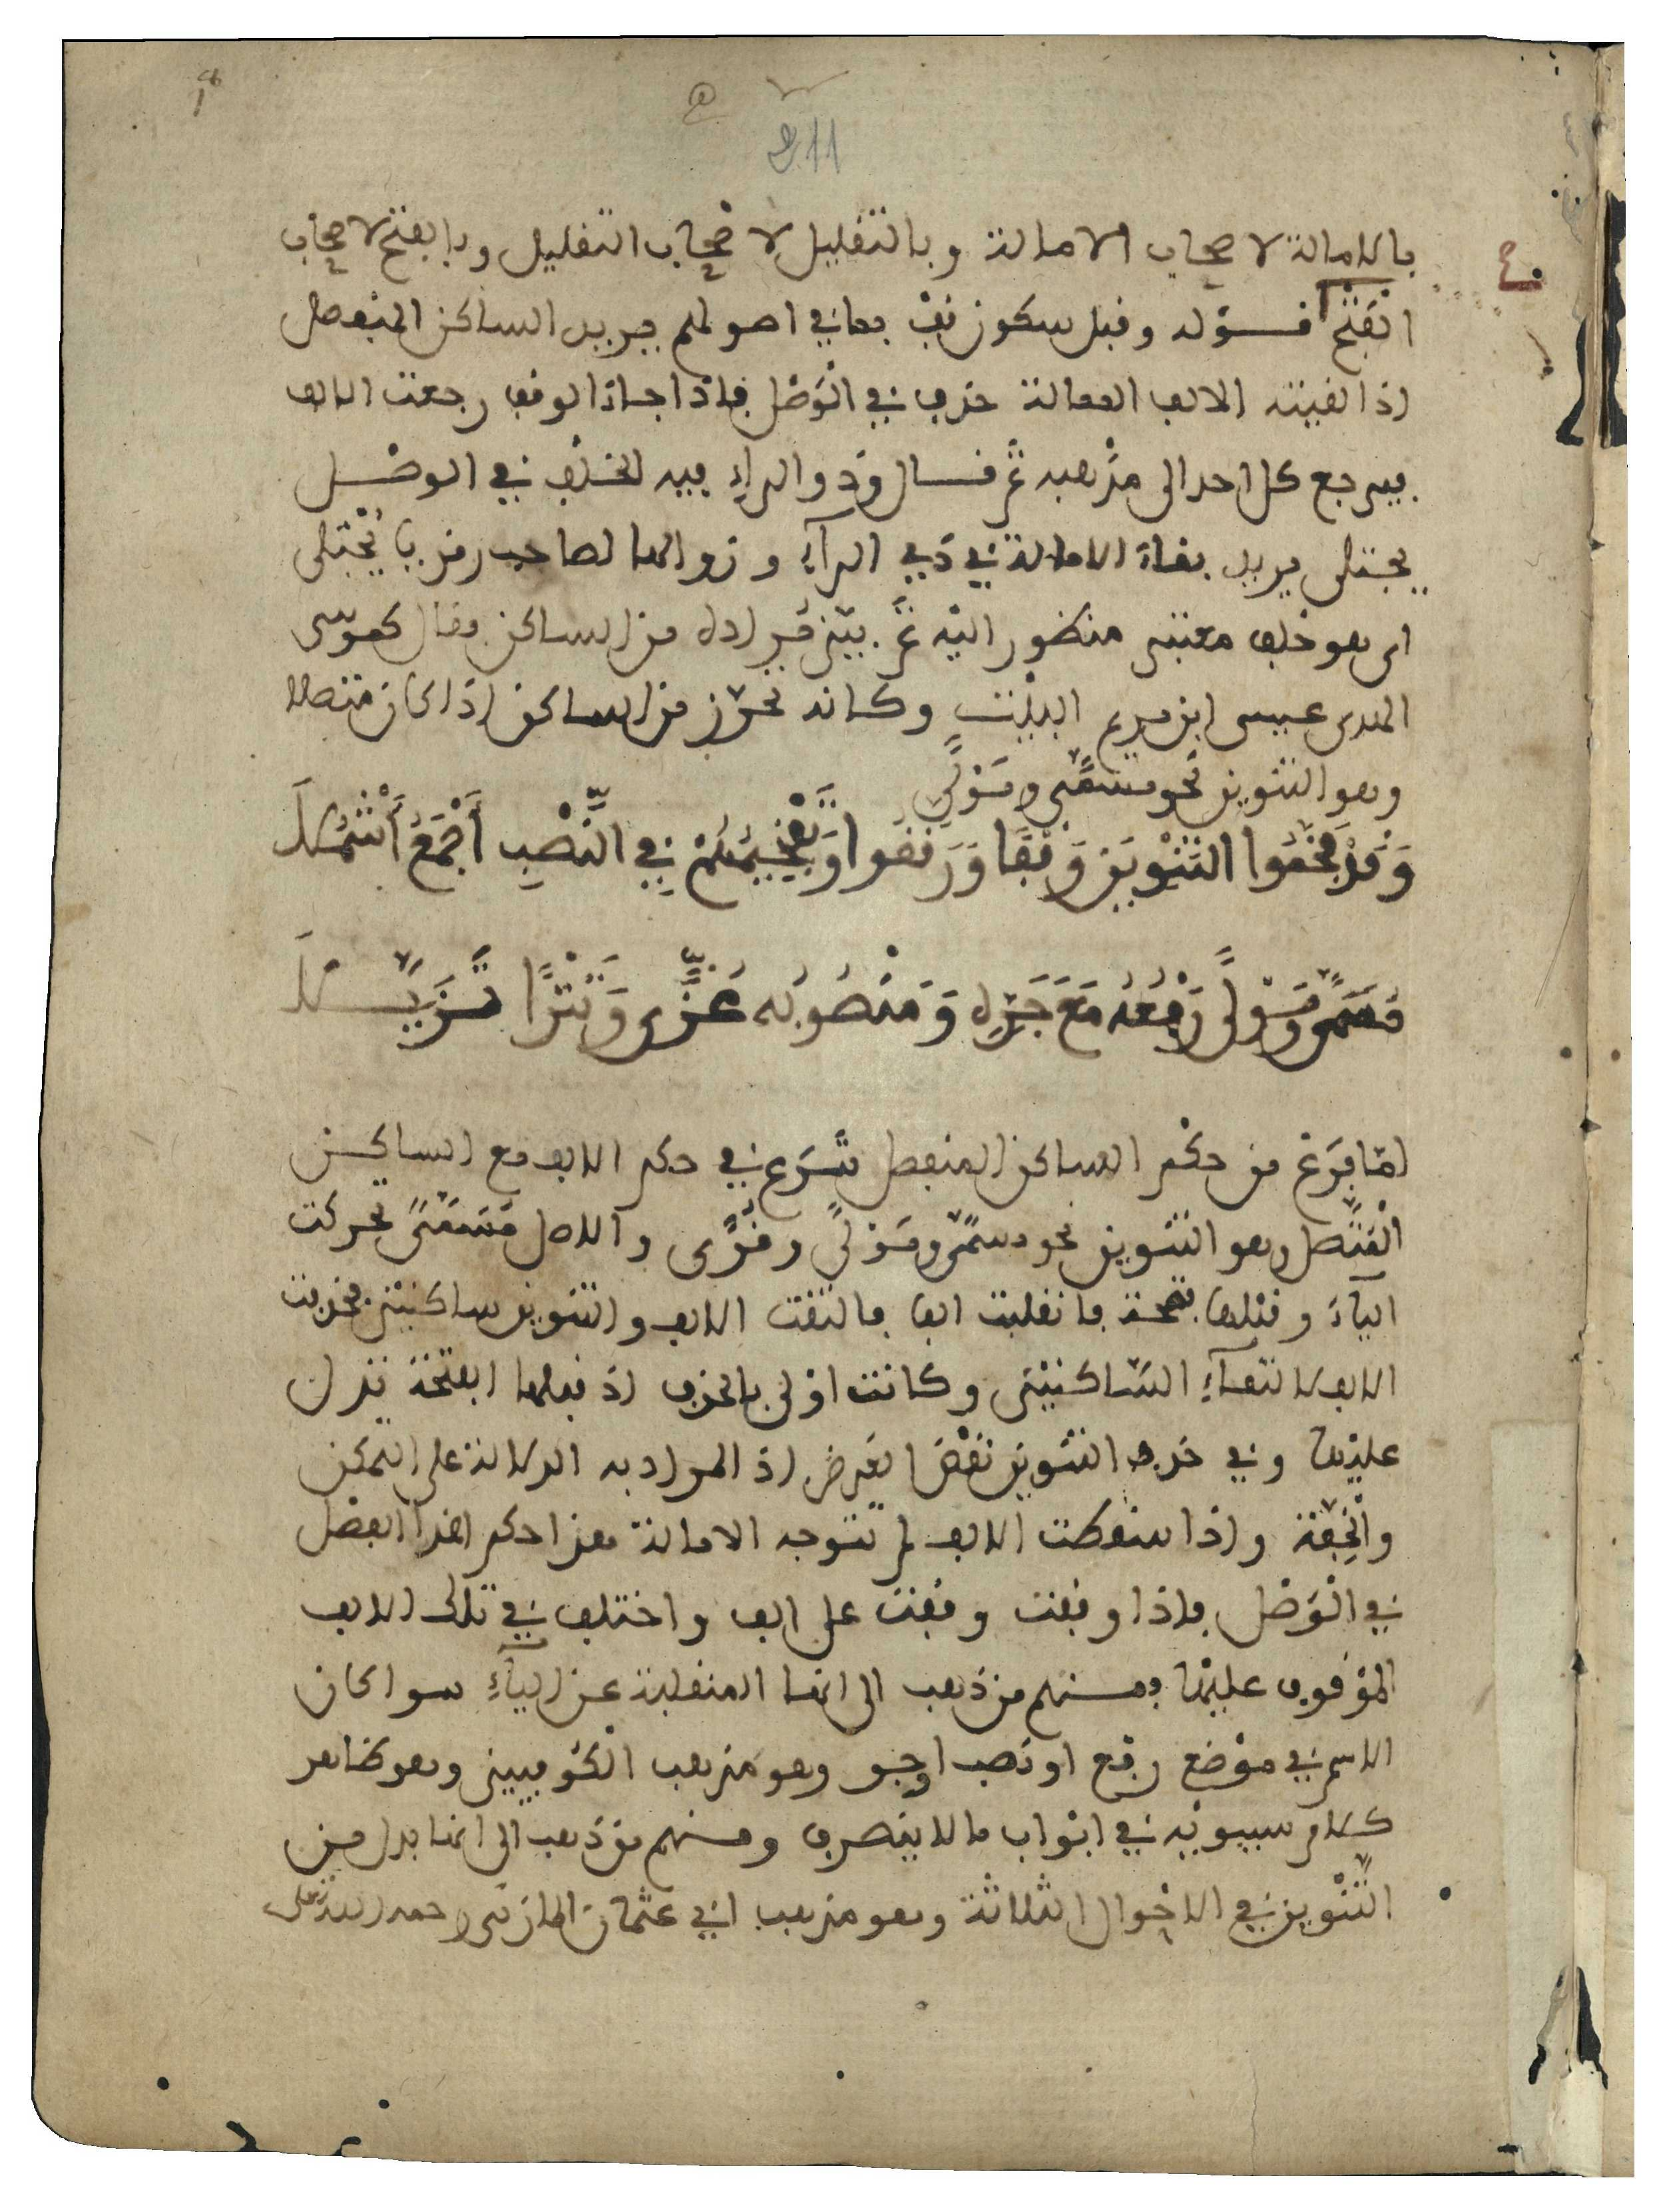 211
بالامالة لاصحاب الامالة وبالتقليل لاصحاب التقليل وبالفتح لاصحاب
الفتح قوله وقبل سكون قف بما في اصولهم يريد الساكن المنفصل
اذا لقيته الالف الممالة حذف في الوصل فاذا جاء الوقف رجعت الالف
فيرجع كل احد الى مذهبه ثم قال وذو الراء فيه الخلف في الوصل
يجتلى يريد بقاء الامالة في ذي الراء وزوالها لصاحب رمز يا يجتلى
اى هو خلف معتنى منظور اليه ثم بين مراده من الساكن وقال كموسى
الهدى عيسى ابن مريم البيت وكانه تحرز من الساكن اذا كان متصلا
وهو التنوين نحو مسمًّى ومَوْلًى
وَقَدْ فَخَّمُوا التَنْوِينَ وَقْفًا وَرَقَّقُوا وَتَفْخِيمُهُمْ فِي النَّصْبِ أَجْمَعُ أَشْمُلَا
مُسَمًّى وَمَوْلًى رَفْعُهُ مَعَ جَرِّهِ وَمَنْصُوبُه غُزًّى وَتَتْرًا تَزَيَّلَا
لمّا فرَغ من حكْم الساكن المنفصل شَرَع في حكم الالف مع الساكن
المتَّصل وهو التنوين نحو مسمًّى ومَوْلًى وقُرًى والاصل مُسَمَّىٌ تحركت
الياءُ وقبْلها فتحة فانقلبت الفا فالتقت الالف والتنوين ساكنيْن فحذفت
الالف لالتقاءِ السّاكنيْن وكانت اوْلى بالحذف اذ قبلها الفتحة تدل
عليْها وفي حذف التنوين نقْضُ الغرض اذ المراد به الدلالة على التمكن
والْخِفّة واذا سقطت الالف لم تتوجه الامالة هذا حكم هذا الفصْل
في الْوَصْل فاذا وقفت وقفت على الف واختلف في تلك الالف
الموْقوف عليْها فمنهم من ذَهب الى انها المنقلبة عن الياءِ سوا كان
الاسم في موْضع رفع او نصب او جر وهو مذهب الْكُوفيين وهو ظاهر
كلام سيبويْه في ابْواب ما لا ينصرف ومنهم من ذَهب الى انها بدل من
التَّنْوين في الاحْوال الثلاثة وهو مذهب ابي عثمان المازني رحمه الله تعلى